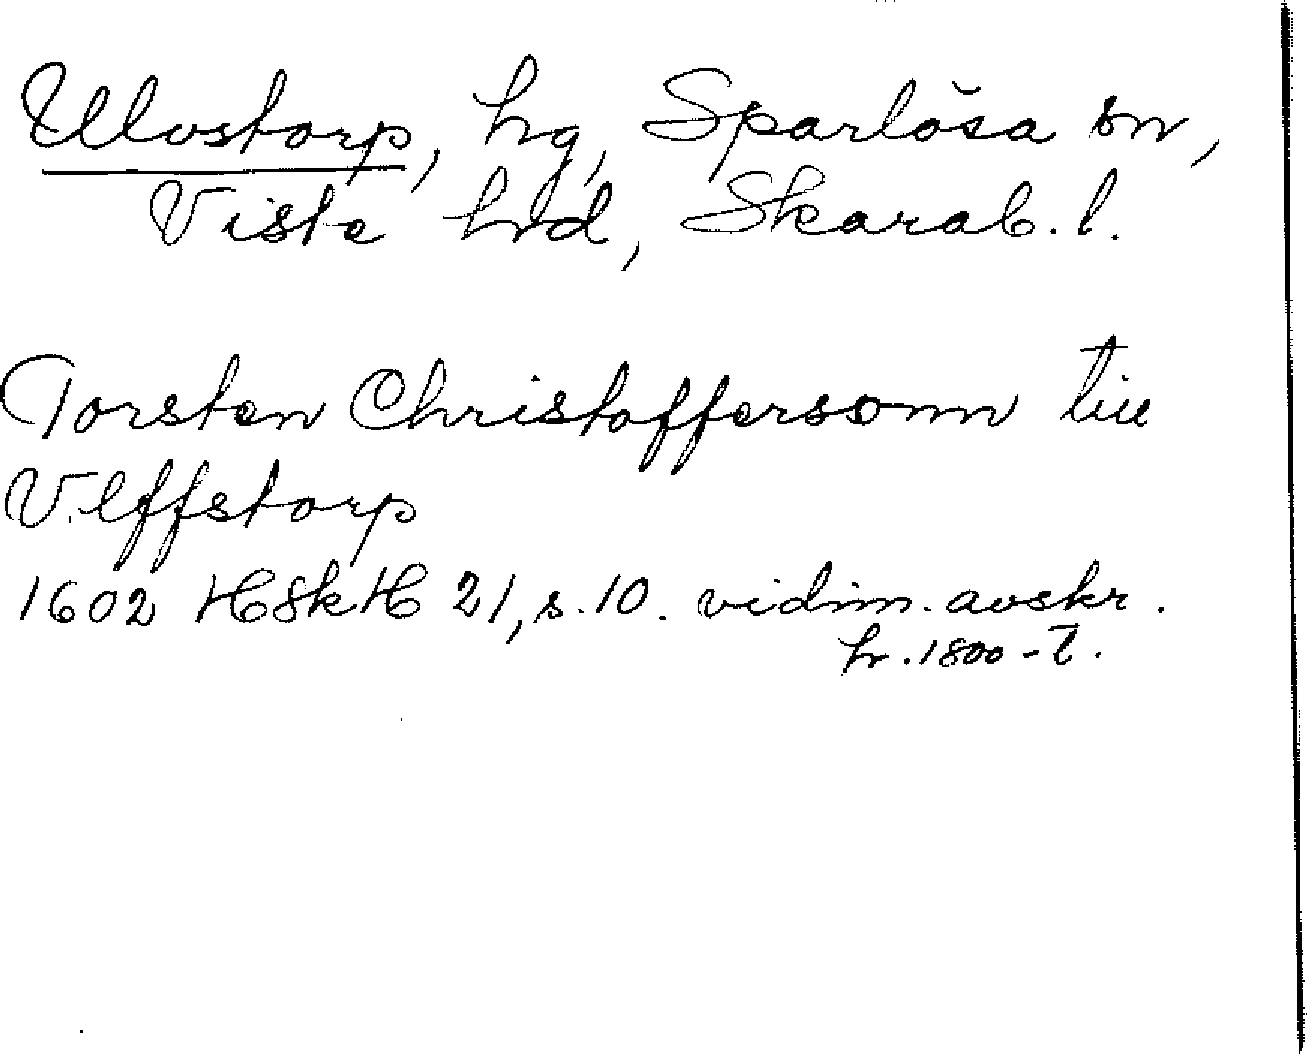 Ulvstorp, hg, Sparlösa sn,
Viste hd, Skarab. l.
Torsten Christoffersonn till
Vlffstorp
1602 HSkH 21, s. 10. vidim. avskr.
fr. 1800-t.